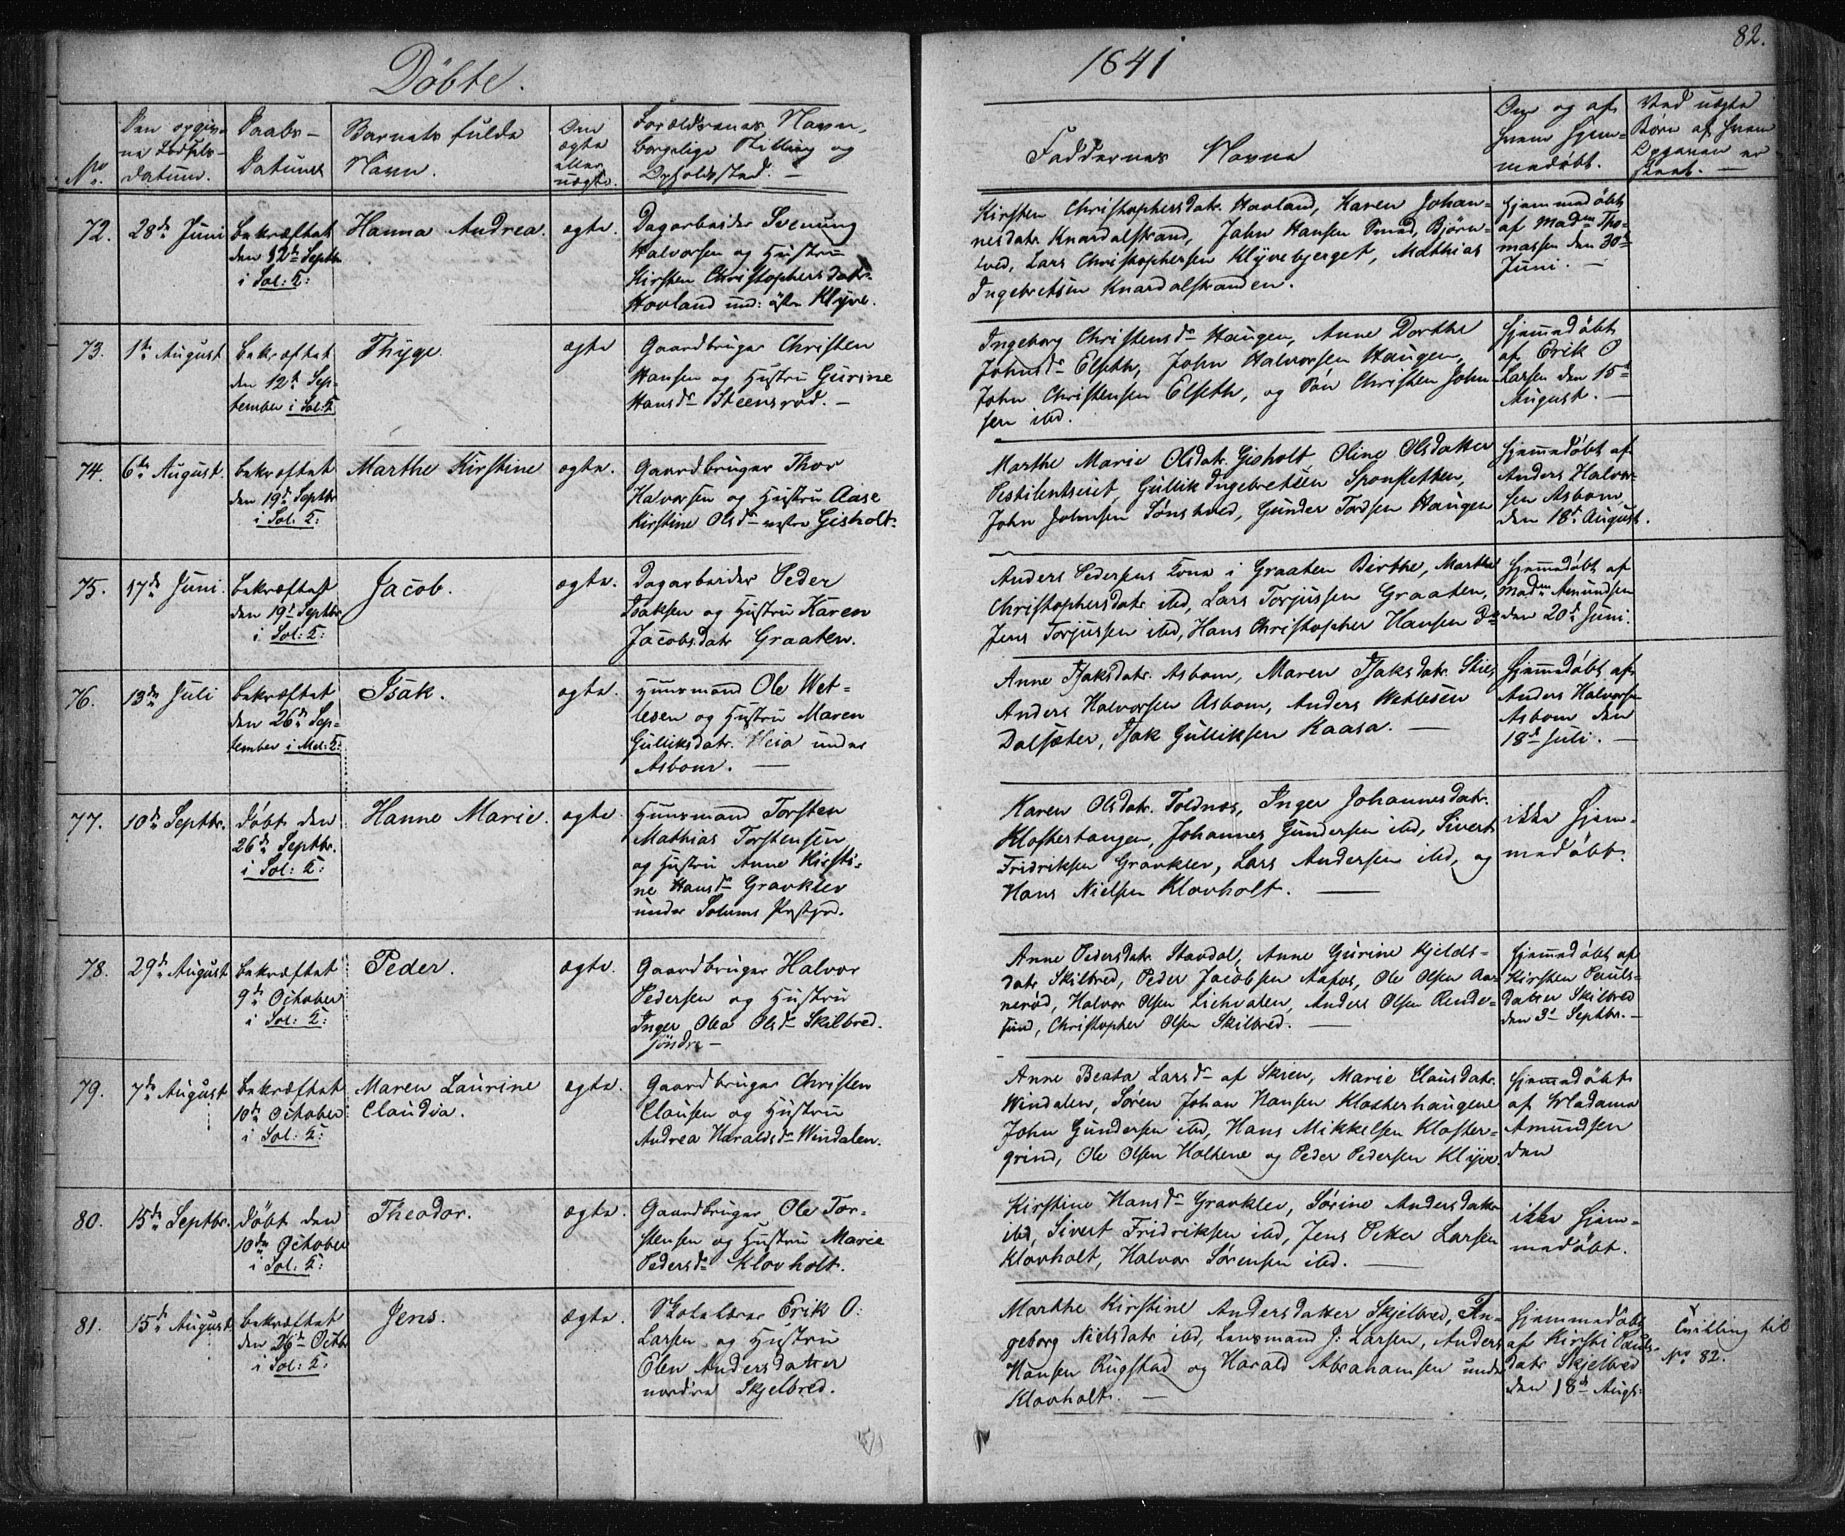 Döbte.
1841
82.
No.
Den opgiv-
ne Födsels-
datum.
Daabs-
Datum
Barnets fulde
Navn.
Om
ægte
eller
uægte.
Forældrenes Navn,
borgelige Stilling og
Opholdssted.
Faddernes Navne
Om og af
hvem hjem-
medöbt.
Ved uægte
Börn af hvem
Opgaven er
skeet. —
72.
28de Juni
bekræftet
den 12te Septbr.
i Sol: K:
Hanna Andrea.
ægte.
Dagarbeider Svenung
Halvorsen og Hustru
Kirsten Christophersdatr.
Hovland und: östre Klyve.
Kirsten Christophersdatr. Hovland, Karen Johan-
nesdatr. Knardalstrand, John Hansen Smed, Björn-
tved, Lars Christophersen Klyvebjerget, Mathias
Ingebretsen Knardalstranden.
Hjemmedöbt
af Madm Tho-
massen den 30te
Juni. —
73.
1te August
bekræftet
den 12te Sep-
tember i Sol: K
Thyge.
ægte
Gaardbruger Christen
Hansen og Hustru Gurine
Hansdr. Steensrød. —
Ingeborg Christensdr. Haugen, Anne Dorthe
Johnsdr. Elseth, John Halvorsen Haugen,
John Christensen Elseth, og Christen John-
sen ibd.
Hjemedöbt
af Erik O
Larsen den 15de
August. —
74.
6te August.
bekræftet
den 19de Septbr.
i Sol: K:
Marthe Kirstine
ægte.
Gaardbruger Thor
Halvorsen og Hustru Aase
Kirstine Olsdr. vestre Gisholt.
Marthe Marie Olsdatr. Gisholt Oline Olsdatter
Gullik Ingebretsen Sponsletten,
John Johnsen Sönstved, Gunder Tordsen Haugen
Hjemmedöbt af
Anders Halvor-
sen Asbom,
den 18de August.
75.
17de Juni.
bekræftet
den 19de Septbr.
i Sol: K:
Jacob.
ægte.
Dagarbeider Peder
Isaksen og Hustru Karen
Jacobsdatr. Graaten.
Anders Pedersens Kone i Graaten Birthe, Marthe
Christophersdatr. ibd, Lars Torjussen Graaten,
Jens Torjussen ibd, Hans Christopher Hansen do
Hjemedöbt af
Madm Amundsen
den 20de Juni.
76.
13de Juli
bekræftet
den 26de Sep-
tember i Mel: K:
Isak.
ægte.
Huusmand Ole Wet-
lesen og Hustru Maren
Gulliksdatr. Heia under
Asbom. —
Anne Isaksdatr. Asbom, Maren Isaksdatr.
Anders Halvorsen Asbom, Anders Wetlesen
Dalsæter, Isak Gulliksen Kaasa. —
Hjemedöbt af
Anders Halvorsen
Asbom den
18de Juli. —
77.
10de Septbr.
döbt den
26de Septbr.
i Sol: K:
Hanne Marie.
ægte.
Huusmand Torsten
Mathias Torstensen
og Hustru Anne Kirsti-
ne Hansdr. Gravklev
under Solums Prstgrd.
Karen Olsdatr. Toldnæs, Inger Johannesdatr.
Klostertangen, Johannes Gundersen ibd, Sivert
Fridriksen Gravklev, Lars Andersen ibd, og
Hans Nielsen Klovholt. —
ikke Hjem-
medöbt.
78.
29de August
bekræftet
9de October
i Sol: K:
Peder.
ægte.
Gaardbruger Halvor
Pedersen og Hustru
Inger Olea Olsdr. Skilbred.
söndre —
Anne Pedersdatr. Stavdal, Anne Gurine Kjelds-
datr. Skilbred, Peder Jacobsen Aafos, Ole Olsen Aa-
nerød, Halvor Olsen Lichvalen, Anders Olsen Rende-
sund, Christopher Olsen Skilbred. —
Hjemmedöbt af
Kirsten Pauls-
datter Skilbred
den 3de Septbr. —
79.
7de August
bekræftet
10de October
i Sol: K:
Maren Laurine
Claudia.
ægte.
Gaardbruger Christen
Clausen og Hustru
Andrea Haraldsdr. Windalen.
Anne Beata Larsdr. af Skien, Marie Clausdatr.
Windalen, Sören Johan Hansen Klosterhaugene
John Gundersen ibd, Hans Mikkelsen Kloster-
grind, Ole Olsen Holtene og Peder Pedersen Klyve.
Hjemmedöbt
af Madame
Amundsen
den
80.
15de Septbr.
döbt den
10de October
i Sol: K:
Theodor.
ægte.
Gaardbruger Ole Tor-
stensen og Hustru Marie
Pedersdr. Klovholt.
Kirstine Hansdr. Gravklev, Sörine Andersdatter
ibd, Sivert Fridriksen ibd, Jens Peter Larsen
Klovholt, Halvor Sörensen ibd. —
ikke Hjem-
medöbt.
81.
15de August
bekræftet
den 26de Octbr
i Sol: K:
Jens.
Ægte.
Skolelærer Erik O:
Larsen og Hustru
Elen Andersdatter
nordre Skjelbred.
Marthe Kirstine Andersdatter Skjelbred, In-
geborg Nielsdatr. ibd, Lensmand J: Larsen, Anders
Hansen Rugstad og Harald Abrahamsen under
Klovholt. —
Hjemmedöbt
af Kirsti Pauls-
datr. Skjelbred
den 18de Augs:
Tvilling til
No. 82.